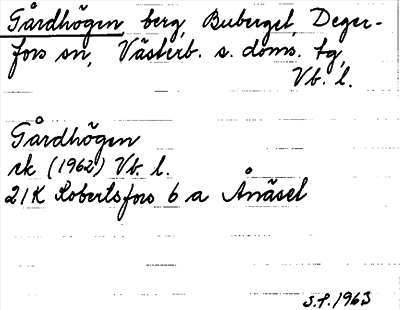 Gårdhögen, berg, Buberget, Deger-
fors sn, Västerb. s. doms. tg,
Vb. l.
Gårdhögen
rk (1962) Vb. l.
21K Robertsfors 6 a Ånäset
S.F. 1963